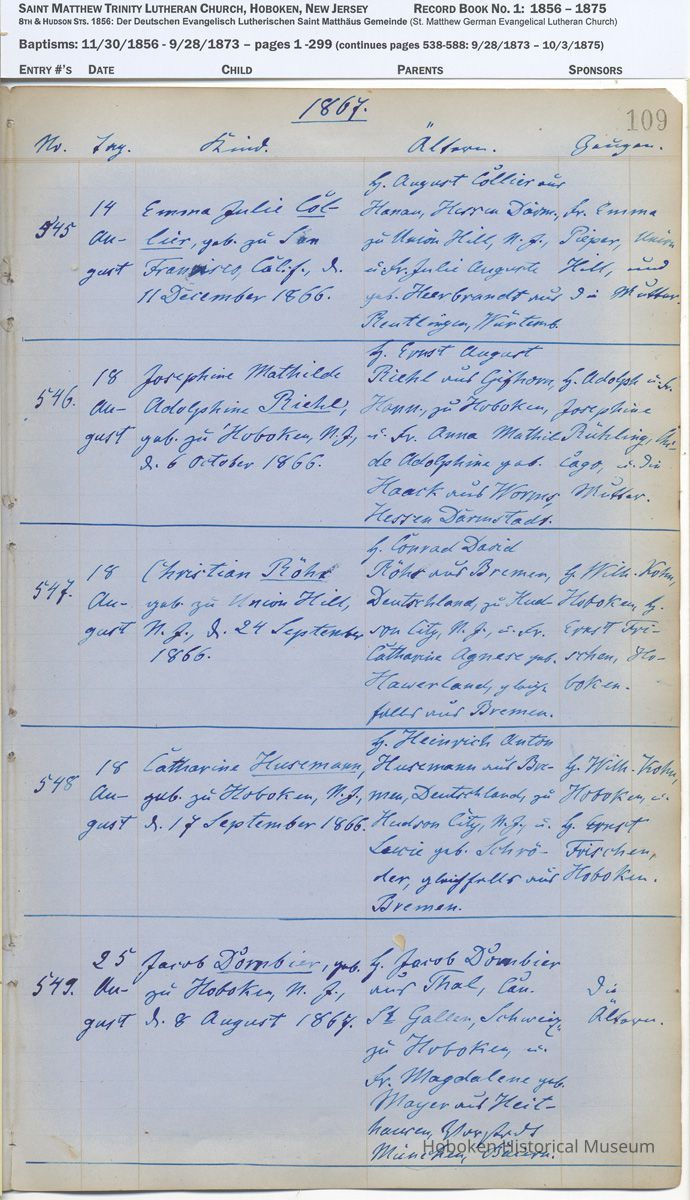 SAINT MATTHEW TRINITY LUTHERAN CHURCH, HOBOKEN, NEW JERSEY RECORD BOOK NO. 1: 1856 – 1875
8TH & HUDSON STS. 1856: Der Deutschen Evangelisch Lutherischen Saint Matthäus Gemeinde (St. Matthew German Evangelical Lutheran Church)
Baptisms: 11/30/1856 - 9/28/1873 – pages 1 -299 (continues pages 538-588: 9/28/1873 – 10/3/1875)
ENTRY #'S DATE CHILD PARENTS SPONSORS
1867.
109
No. Tag. Kind. Ältern. Zeugen.
545
14
Au-
gust
Emma Julie Col-
lier, geb. zu San
Francisco, Calif., d.
11 December 1866.
H. August Collier aus
Hanau, Hessen Darm.,
zu Union Hill, N. J.,
u. Fr. Julie Auguste
geb. Heerbrandt aus
Reutlingen, Würtemb.
Fr. Emma
Pieper, Union
Hill, und
die Mutter.
546.
18
Au-
gust
Josephine Mathilde
Adolphine Riehl,
geb. zu Hoboken, N. J.,
d. 6 October 1866.
H. Ernst August
Riehl aus Gifhorn,
Hann., zu Hoboken,
u. Fr. Anna Mathil
de Adolphine geb.
Haack aus Worms,
Hessen Darmstadt.
H. Adolph u. Fr.
Josephine
Rühling, Chi-
cago, u. die
Mutter.
547.
18
Au-
gust
Christian Röhr
geb. zu Union Hill,
N. J., d. 24 September
1866.
H. Conrad David
Röhr aus Bremen,
Deutschland, zu Hud
son City, N. J., u. Fr.
Catharine Agnese geb.
Hawerland, gleich
falls aus Bremen.
H. Wilh. Kohn,
Hoboken, H.
Ernst Fri-
schen, Ho-
boken.
548
18
Au-
gust
Catharine Husemann,
geb. zu Hoboken, N. J.,
d. 17 September 1866.
H. Heinrich Anton
Husemann aus Bre-
men, Deutschland, zu
Hudson City, N. J., u.
geb. Schrö-
der, gleichfalls aus
Bremen.
H. Wilh. Kohn,
Hoboken, u.
H. Ernst
Frischen,
Hoboken.
549.
25
Au-
gust
Jacob Dombier, geb.
zu Hoboken, N. J.,
d. 8 August 1867.
H. Jacob Dombier
aus Thal, Can.
St Gallen, Schweiz,
zu Hoboken, u.
Fr. Magdalene geb.
Mayer aus Heit-
hausen, Vorstadt
München, Baiern.
Die
Ältern.
Hoboken Historical Museum